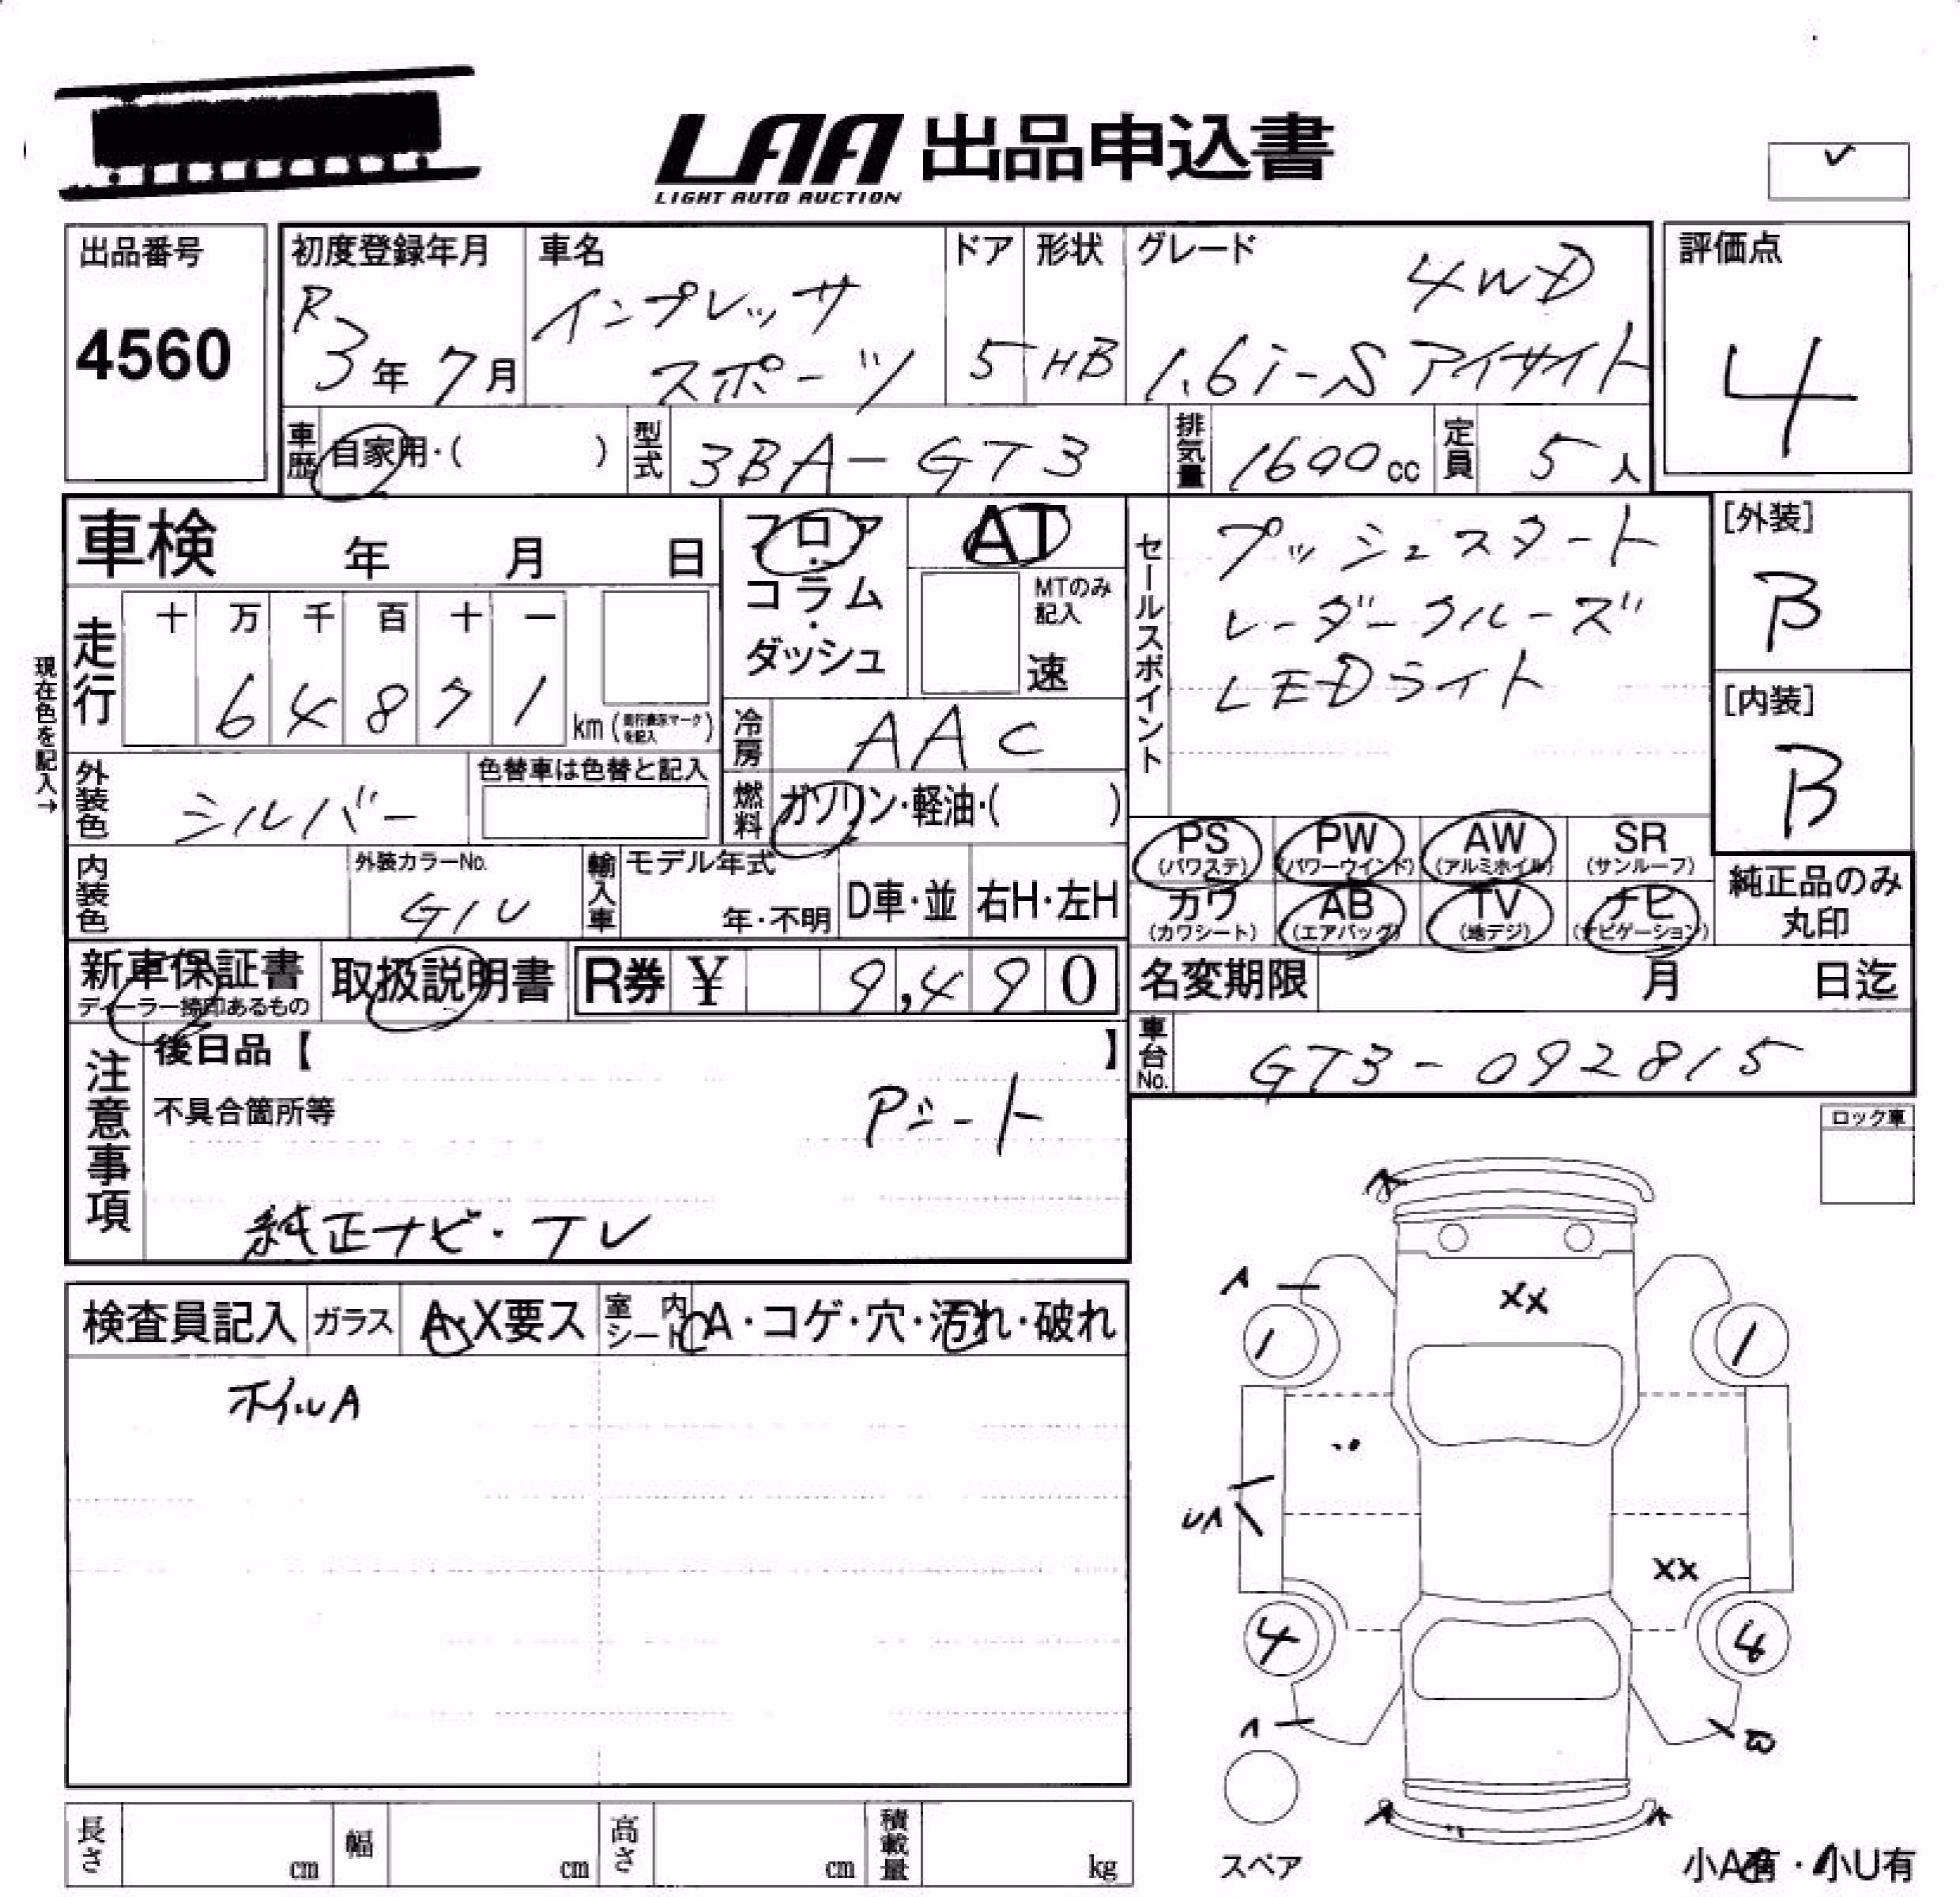 LAA 出品申込書
LIGHT AUTO AUCTION
✓
出品番号
4560
初度登録年月
R3年7月
車名
インプレッサ
スポーツ
ドア
5
形状
HB
グレード
4WD
1.6i-S アイサイト
評価点
4
車歴
自家用・( )
型式
3BA-GT3
排気量
1600cc
定員
5人
車検 年 月 日
フロア・コラム・ダッシュ
AT
MTのみ記入
速
セールスポイント
プッシュスタート
レーダークルーズ
LEDライト
[外装]
B
[内装]
B
現在色を記入→
走行
十 万 千 百 十 一
6 4 8 7 1
km (走行表示マークを記入)
冷房
AAC
燃料
ガソリン・軽油・( )
外装色
シルバー
色替車は色替と記入
内装色
外装カラーNo.
G1U
輸入車
モデル年式
年・不明
D車・並
右H・左H
PS (パワステ)
PW (パワーウインド)
AW (アルミホイル)
SR (サンルーフ)
カワ (カワシート)
AB (エアバッグ)
TV (地デジ)
ナビ (ナビゲーション)
純正品のみ丸印
新車保証書
ディーラー捺印あるもの
取扱説明書
R券 ¥ 9,490
名変期限 月 日迄
車台No.
GT3-092815
注意事項
後日品【 】
不具合箇所等
Pシート
純正ナビ・TV
ロック車
検査員記入
ガラス
A・X要ス
室内シート
A・コゲ・穴・汚れ・破れ
ホイルA
A
A
XX
1
1
UA
XX
4
4
A
A
A
スペア
小A有・小U有
長さ cm
幅 cm
高さ cm
積載量 kg